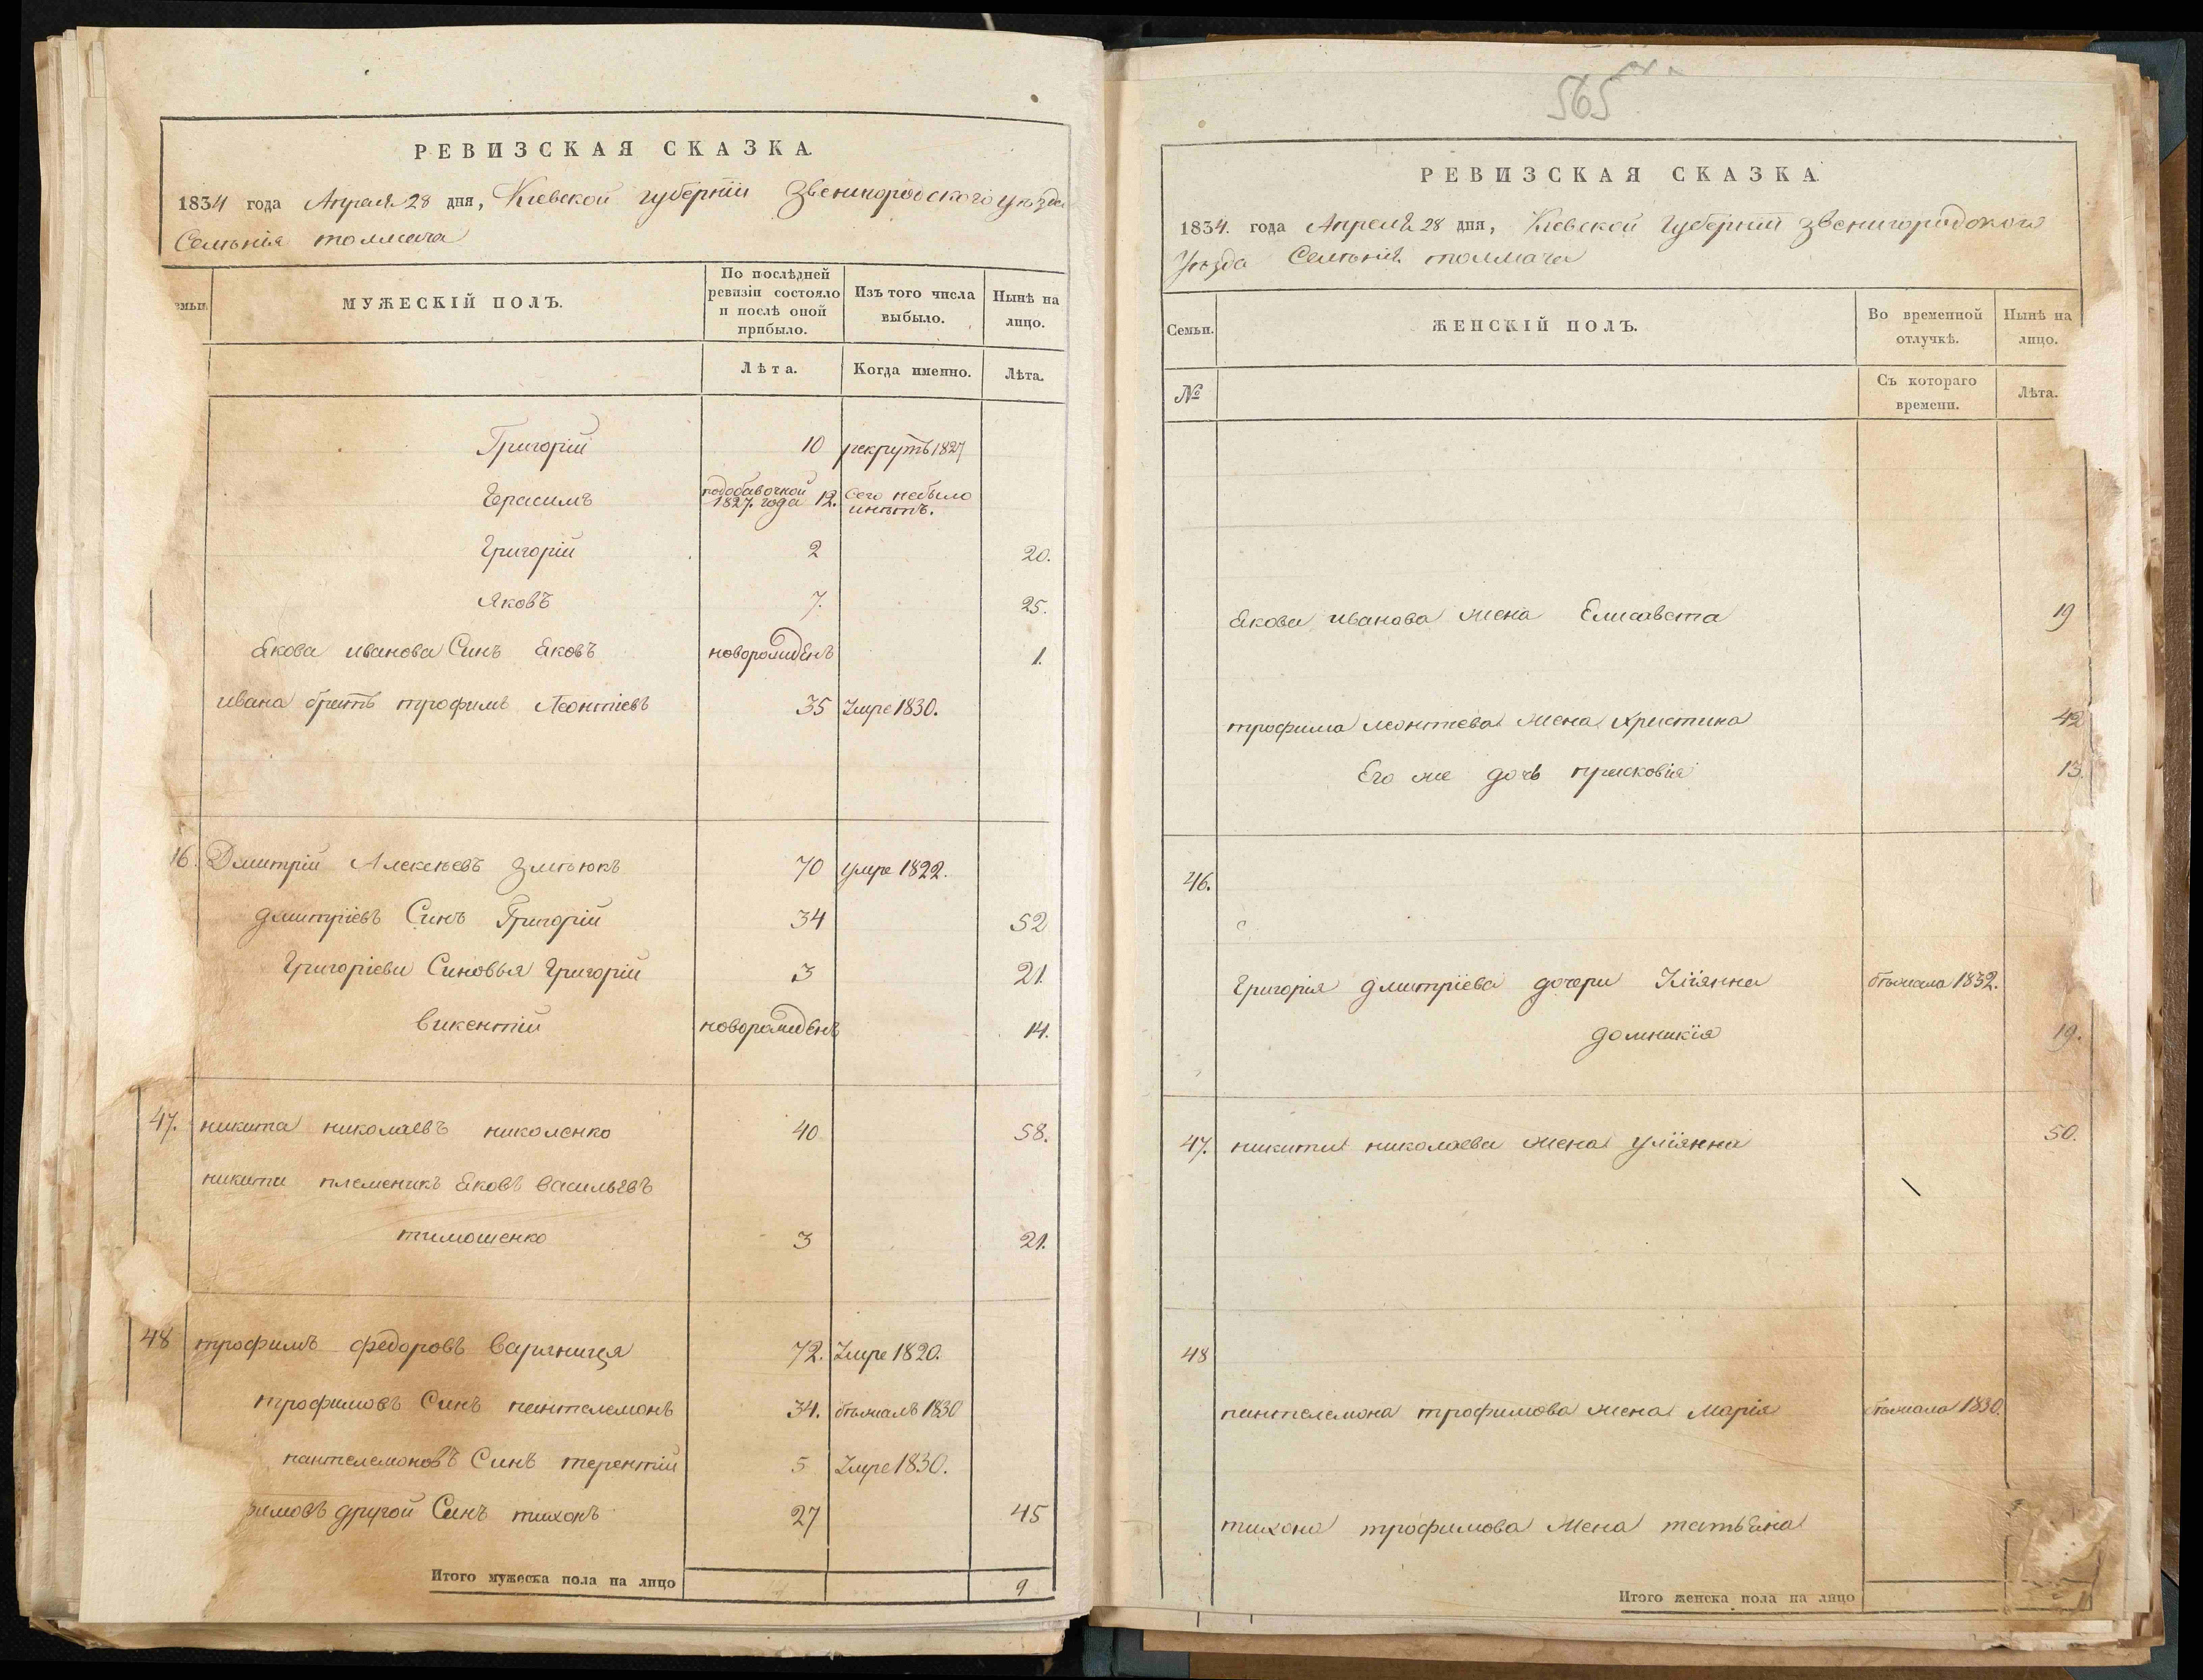 РЕВИЗСКАЯ СКАЗКА.
1834 года Апреля 28 дня, Кіевской губерніи Звенигородского уезда
Селенія толмача
МУЖЕСКІЙ ПОЛЪ.
По послѣдней ревизіи состояло и послѣ оной прибыло.
Изъ того числа выбыло.
Нынѣ на лицо.
Лѣта.
Когда именно.
Лѣта.
Григорій 10 рекрутъ 1827
Герасимъ подобавочной 1827. года 12. Сего небыло инѣтъ.
Григорій 2 20.
Яковъ 7. 25.
Якова иванова Синъ Яковъ новорожденъ 1.
ивана братъ трофимъ Леонтіевъ 35 Умре 1830.
16. Дмитрій Алексѣевъ Змѣюкъ 70 умре 1822.
дмитріевъ Синъ Григорій 34 52
Григоріеви Синовья Григорій 3 21.
викентій новорожденъ 14.
47. никита николаевъ николенко 40 58.
никити племеникъ Яковъ васильевъ
тимошенко 3 21.
48 трофимъ федоровъ Варяница 72. Умре 1820.
трофимовъ Синъ пантелемонъ 34. бѣжалъ 1830
пантелемоновъ Синъ терентій 5 Умре 1830.
фимовъ другой Синъ тихонъ 27 45
Итого мужеска пола на лицо 9
565
РЕВИЗСКАЯ СКАЗКА.
1834. года Апреля 28 дня, Кіевской Губерніи Звенигородского
Уѣзда Селенія толмача
Семьи.
ЖЕНСКІЙ ПОЛЪ.
Во временной отлучкѣ.
Нынѣ на лицо.
№
Съ котораго времени.
Лѣта.
Якова иванова жена Елисавета 19
трофима леонтіева жена христина 42
Его же дочь прасковія 13.
46.
Григорія дмитріева дочери Уліянна бѣжала 1832.
домникія 19.
47. никити николаева жена уліянна 50.
48
пантелемона трофимова жена Марія бѣжала 1830.
тихона трофимова жена татьяна
Итого женска пола на лицо